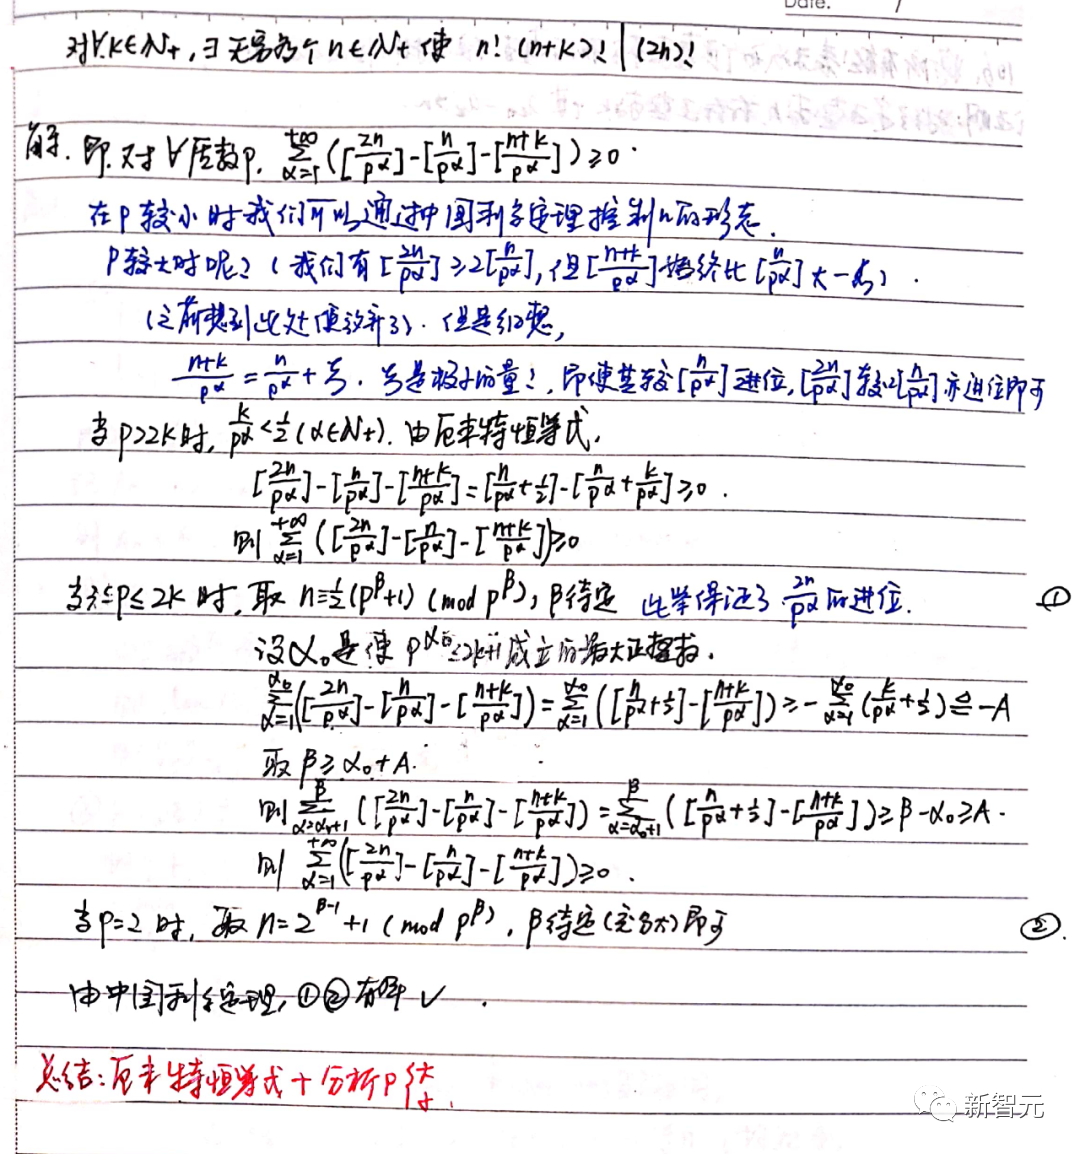 Date.
对∀k∈N+,∃无穷多个n∈N+使 n!(n+k)!|(2n)!
解.即对∀质数p, \sum_{α=1}^{+∞}([2n/p^α]-[n/p^α]-[(n+k)/p^α])≥0.
在p较小时我们可以通过中国剩余定理控制n的形态.
p较大时呢?(我们有[2n/p^α]≥2[n/p^α],但[(n+k)/p^α]始终比[n/p^α]大一点).
(之前想到此处便放弃了).但是细想,
(n+k)/p^α=n/p^α+ . 是极小的量!,即使其较[n/p^α]进位,[2n/p^α]较2[n/p^α]亦进位即可
当p>2k时, k/p^α<1/2(α∈N+).由厄米特恒等式,
[2n/p^α]-[n/p^α]-[(n+k)/p^α]=[n/p^α+1/2]-[n/p^α+k/p^α]≥0.
则\sum_{α=1}^{+∞}([2n/p^α]-[n/p^α]-[(n+k)/p^α])≥0
当3≤p≤2k时,取 n≡1/2(p^β+1)(mod p^β),β待定 此举保证了2n/p^α的进位. ①
设α₀是使p^{α₀}≤2k+1成立的最大正整数.
\sum_{α=1}^{α₀}([2n/p^α]-[n/p^α]-[(n+k)/p^α])=\sum_{α=1}^{α₀}([n/p^α+1/2]-[(n+k)/p^α])≥-\sum_{α=1}^{α₀}(k/p^α+1/2)≜-A
取β≥α₀+A.
则\sum_{α=α₀+1}^{β}([2n/p^α]-[n/p^α]-[(n+k)/p^α])=\sum_{α=α₀+1}^{β}([n/p^α+1/2]-[(n+k)/p^α])≥β-α₀≥A.
则\sum_{α=1}^{+∞}([2n/p^α]-[n/p^α]-[(n+k)/p^α])≥0.
当p=2时,取n=2^{β-1}+1(mod p^β),β待定(充分大)即可 ②.
由中国剩余定理,①②有解√.
总结:厄米特恒等式+分析p大小.
新智元